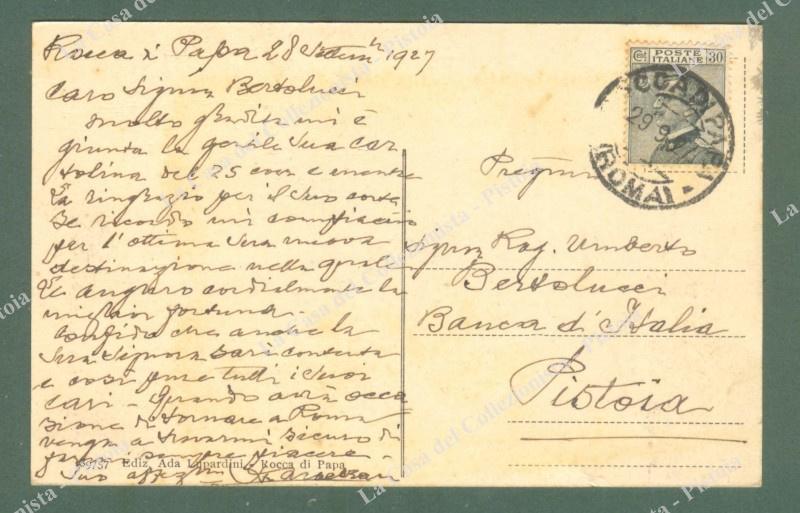 Rocca di Papa 28 Settem 1927
Caro Signor Bertolucci
molto gradita mi è
giunta la gentile Sua car
tolina del 25 corr e mentre
La ringrazio per il Suo corte
se ricordo mi compiaccio
per l'ottima Sua nuova
destinazione nella quale
Le auguro cordialmente la
miglior fortuna.
Confido che anche la
Sua Signora sarà contenta
e così pure tutti i Suoi
cari - Quando avrà occa
sione di tornare a Roma
venga a trovarmi sicuro di
farmi sempre piacere -
Suo affez
39757 Ediz. Ada Lunardini - Rocca di Papa
Cent. 30
POSTE
ITALIANE
ROCCA DI PAPA
29 9
(ROMA)
Pregmo
Rag. Umberto
Bertolucci
Banca d'Italia
Pistoia
La Casa del Collezionista - Pistoia